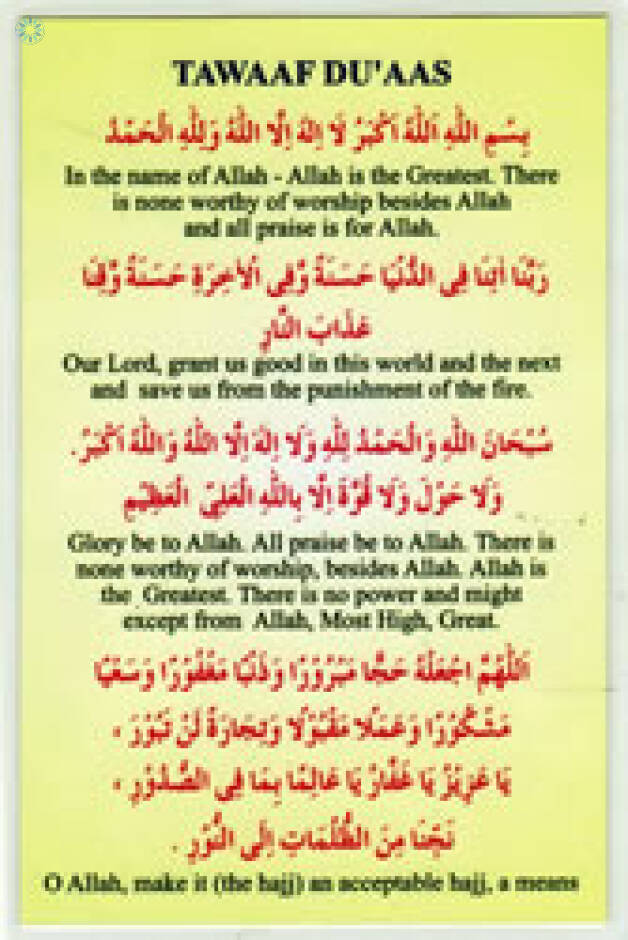 TAWAAF DU'AAS
بِسْمِ اللهِ اَللهُ اَكْبَرُ لَا اِلٰهَ اِلَّا اللهُ وَلِلّٰهِ الْحَمْدُ
In the name of Allah - Allah is the Greatest. There
is none worthy of worship besides Allah
and all praise is for Allah.
رَبَّنَا اٰتِنَا فِى الدُّنْيَا حَسَنَةً وَّفِى الْاٰخِرَةِ حَسَنَةً وَّقِنَا
عَذَابَ النَّارِ
Our Lord, grant us good in this world and the next
and save us from the punishment of the fire.
سُبْحَانَ اللهِ وَالْحَمْدُ لِلّٰهِ وَلَا اِلٰهَ اِلَّا اللهُ وَاللهُ اَكْبَرُ.
وَلَا حَوْلَ وَلَا قُوَّةَ اِلَّا بِاللهِ الْعَلِىِّ الْعَظِيْمِ
Glory be to Allah. All praise be to Allah. There is
none worthy of worship, besides Allah. Allah is
the Greatest. There is no power and might
except from Allah, Most High, Great.
اَللّٰهُمَّ اجْعَلْهُ حَجًّا مَبْرُوْرًا وَذَنْبًا مَغْفُوْرًا وَسَعْيًا
مَشْكُوْرًا وَعَمَلًا مَقْبُوْلًا وَتِجَارَةً لَنْ تَبُوْرَ ،
يَا عَزِيْزُ يَا غَفَّارُ يَا عَالِمًا بِمَا فِى الصُّدُوْرِ ،
نَجِّنَا مِنَ الظُّلُمَاتِ اِلَى النُّوْرِ .
O Allah, make it (the hajj) an acceptable hajj, a means